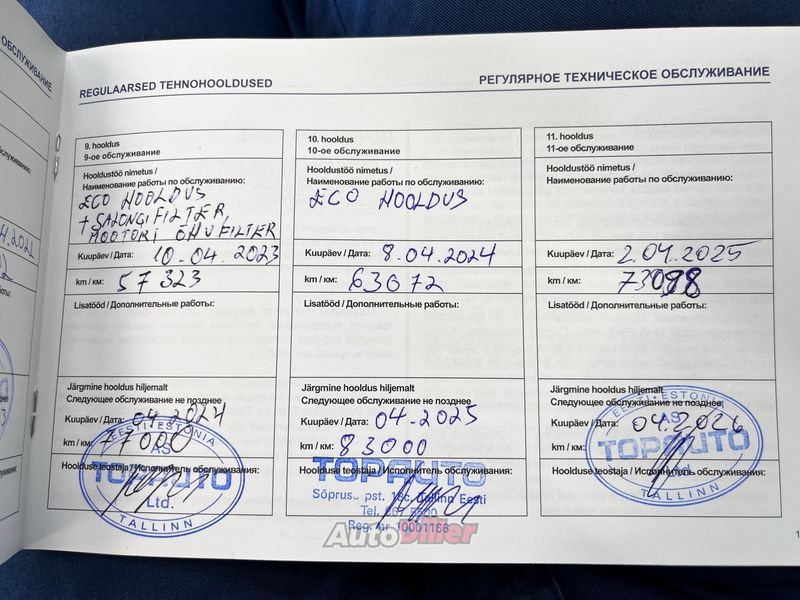 REGULAARSED TEHNOHOOLDUSED
РЕГУЛЯРНОЕ ТЕХНИЧЕСКОЕ ОБСЛУЖИВАНИЕ
9. hooldus
9-ое обслуживание
Hooldustöö nimetus /
Наименование работы по обслуживанию:
ECO HOOLDUS
+ SALONGIFILTER,
MOOTORI ÕHUFILTER
Kuupäev / Дата: 10.04.2023
km / км: 57323
Lisatööd / Дополнительные работы:
Järgmine hooldus hiljemalt
Следующее обслуживание не позднее
Kuupäev / Дата: 04.2024
km / км: 77000
Hoolduse teostaja / Исполнитель обслуживания:
EESTI · ESTONIA
AS
TOPAUTO
Ltd.
TALLINN
10. hooldus
10-ое обслуживание
Hooldustöö nimetus /
Наименование работы по обслуживанию:
ECO HOOLDUS
Kuupäev / Дата: 8.04.2024
km / км: 63672
Lisatööd / Дополнительные работы:
Järgmine hooldus hiljemalt
Следующее обслуживание не позднее
Kuupäev / Дата: 04.2025
km / км: 83000
Hoolduse teostaja / Исполнитель обслуживания:
TOPAUTO
Sõpruse pst. Tallinn Eesti
Tel.
Reg. nr 10001166
11. hooldus
11-ое обслуживание
Hooldustöö nimetus /
Наименование работы по обслуживанию:
Kuupäev / Дата: 2.04.2025
km / км:
Lisatööd / Дополнительные работы:
Järgmine hooldus hiljemalt
Следующее обслуживание не позднее
Kuupäev / Дата: 04.2026
km / км:
Hoolduse teostaja / Исполнитель обслуживания:
EESTI · ESTONIA
AS
TOPAUTO
Ltd.
TALLINN
AutoDiiler